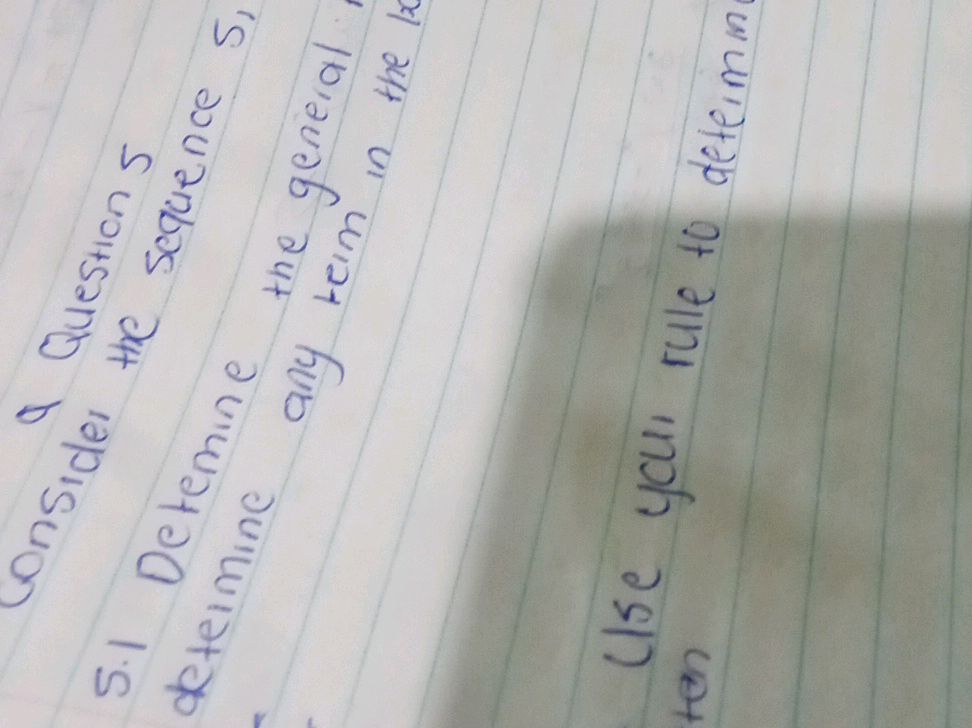 Question 5
Consider the sequence 5,
5.1 Detemine the general
determine any term in the
Use your rule to
ten